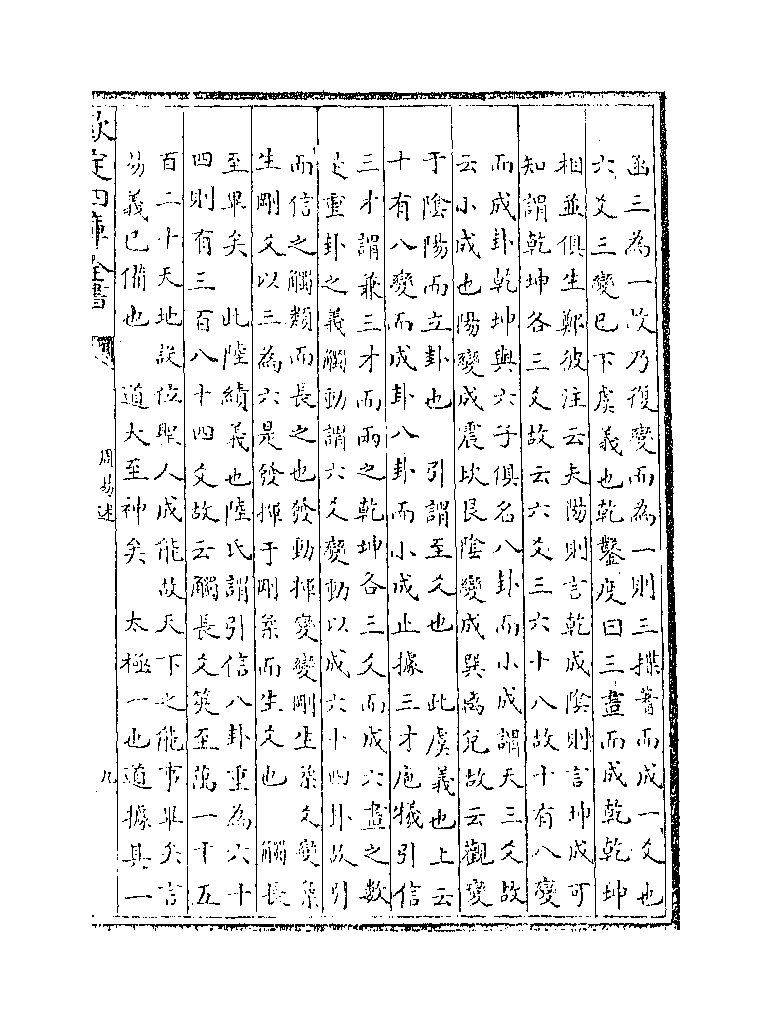 函三為一故乃復變而為一則三揲蓍而成一爻也
六爻三變已下虞義也乾鑿度曰三畫而成乾乾坤
相並俱生鄭彼注云夫陽則言乾成陰則言坤成可
知謂乾坤各三爻故云六爻三六十八故十有八變
而成卦乾坤與六子俱名八卦而小成謂天三爻故
云小成也陽變成震坎艮陰變成巽离兌故云觀變
于陰陽而立卦也　引謂至爻也　此虞義也上云
十有八變而成卦八卦而小成止據三才庖犧引信
三才謂兼三才而兩之乾坤各三爻而成六畫之數
是重卦之義觸動謂六爻變動以成六十四卦故引
而信之觸類而長之也發動揮變變剛生柔爻變柔
生剛爻以三為六是發揮于剛柔而生爻也　觸長
至畢矣　此陸績義也陸氏謂引信八卦重為六十
四則有三百八十四爻故云觸長爻筴至萬一千五
百二十天地設位聖人成能故天下之能事畢矣言
易義已備也　道大至神矣　太極一也道據其一
欽定四庫全書
周易述
九